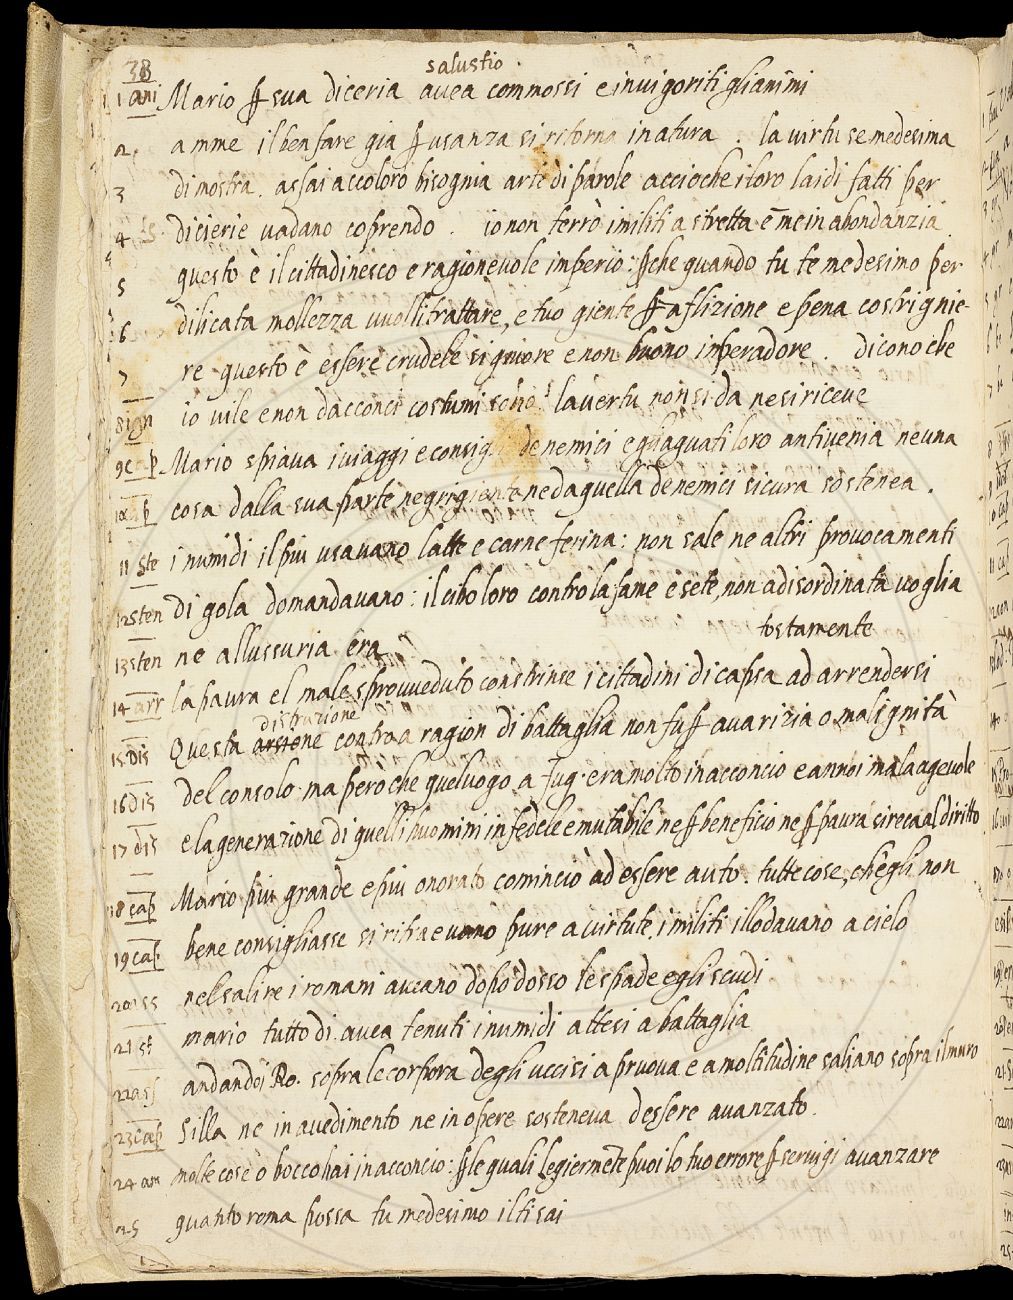 38
salustio
1 ani Mario ꝑ sua diceria avea commossi e invigoriti gli animi
2 amme il ben fare gia ꝑ usanza si ritorna in atura . la virtu se medesima
3 dimostra . assai accoloro bisognia arte di parole accioche i loro laidi fatti per
4 dicierie vadano coprendo . io non terrò i militi a stretta e me in abondanzia
5 questo è il cittadinesco e ragionevole imperio : ꝑche quando tu te medesimo per
6 dilicata mollezza vuolli trattare, e tuo giente ꝑ aflizione e pena costrignie-
7 re questo è essere crudele signiore e non buono inperadore . dicono che
8 ign io vile e non dacconci costumi sono la vertu non si da ne si riceve
9 Mario spiava i viaggi e consigli de nemici e gli aguati loro antivenia neuna
cosa dalla sua parte negrigiente ne da quella de nemici sicura sostenea .
11 ste i numidi il piu usavano latte e carne ferina : non sale ne altri provocamenti
12 sten di gola domandavano : il cibo loro contro la fame e sete, non a disordinata voglia
tostamente
13 sten ne allussuria era
14 arr la paura el male sprovveduto constrinse i cittadini di capsa ad arrendersi
distruzione
15 dis Questa arsione contra a ragion di battaglia non fu ꝑ avarizia o malignità
16 dis del consolo . ma però che quel luogo a Jug. era molto inacconcio e a nnoi malaagevole
17 dis e la generazione di quelli huomini infedele e mutabile ne ꝑ beneficio ne ꝑ paura si reca al diritto
18 cap Mario piu grande e piu onorato cominciò ad essere auto . tutte cose, ch egli non
19 cap bene consigliasse si ritraevano pure a virtute . i militi il lodavano a cielo
20 nel salire i romani aveano dopo dosso le spade e gli scudi
21 mario tutto di avea tenuti i numidi attesi a battaglia
22 andando i Ro. sopra le corpora degli uccisi a pruova e a moltitudine saliano sopra il muro
23 cap Silla ne in avedimento ne in opere sosteneva dessere avanzato .
24 am molte cose o boccho hai in acconcio : ꝑ le quali legiermente puoi lo tuo errore ꝑ servigi avanzare
25 quanto roma possa tu medesimo il ti sai